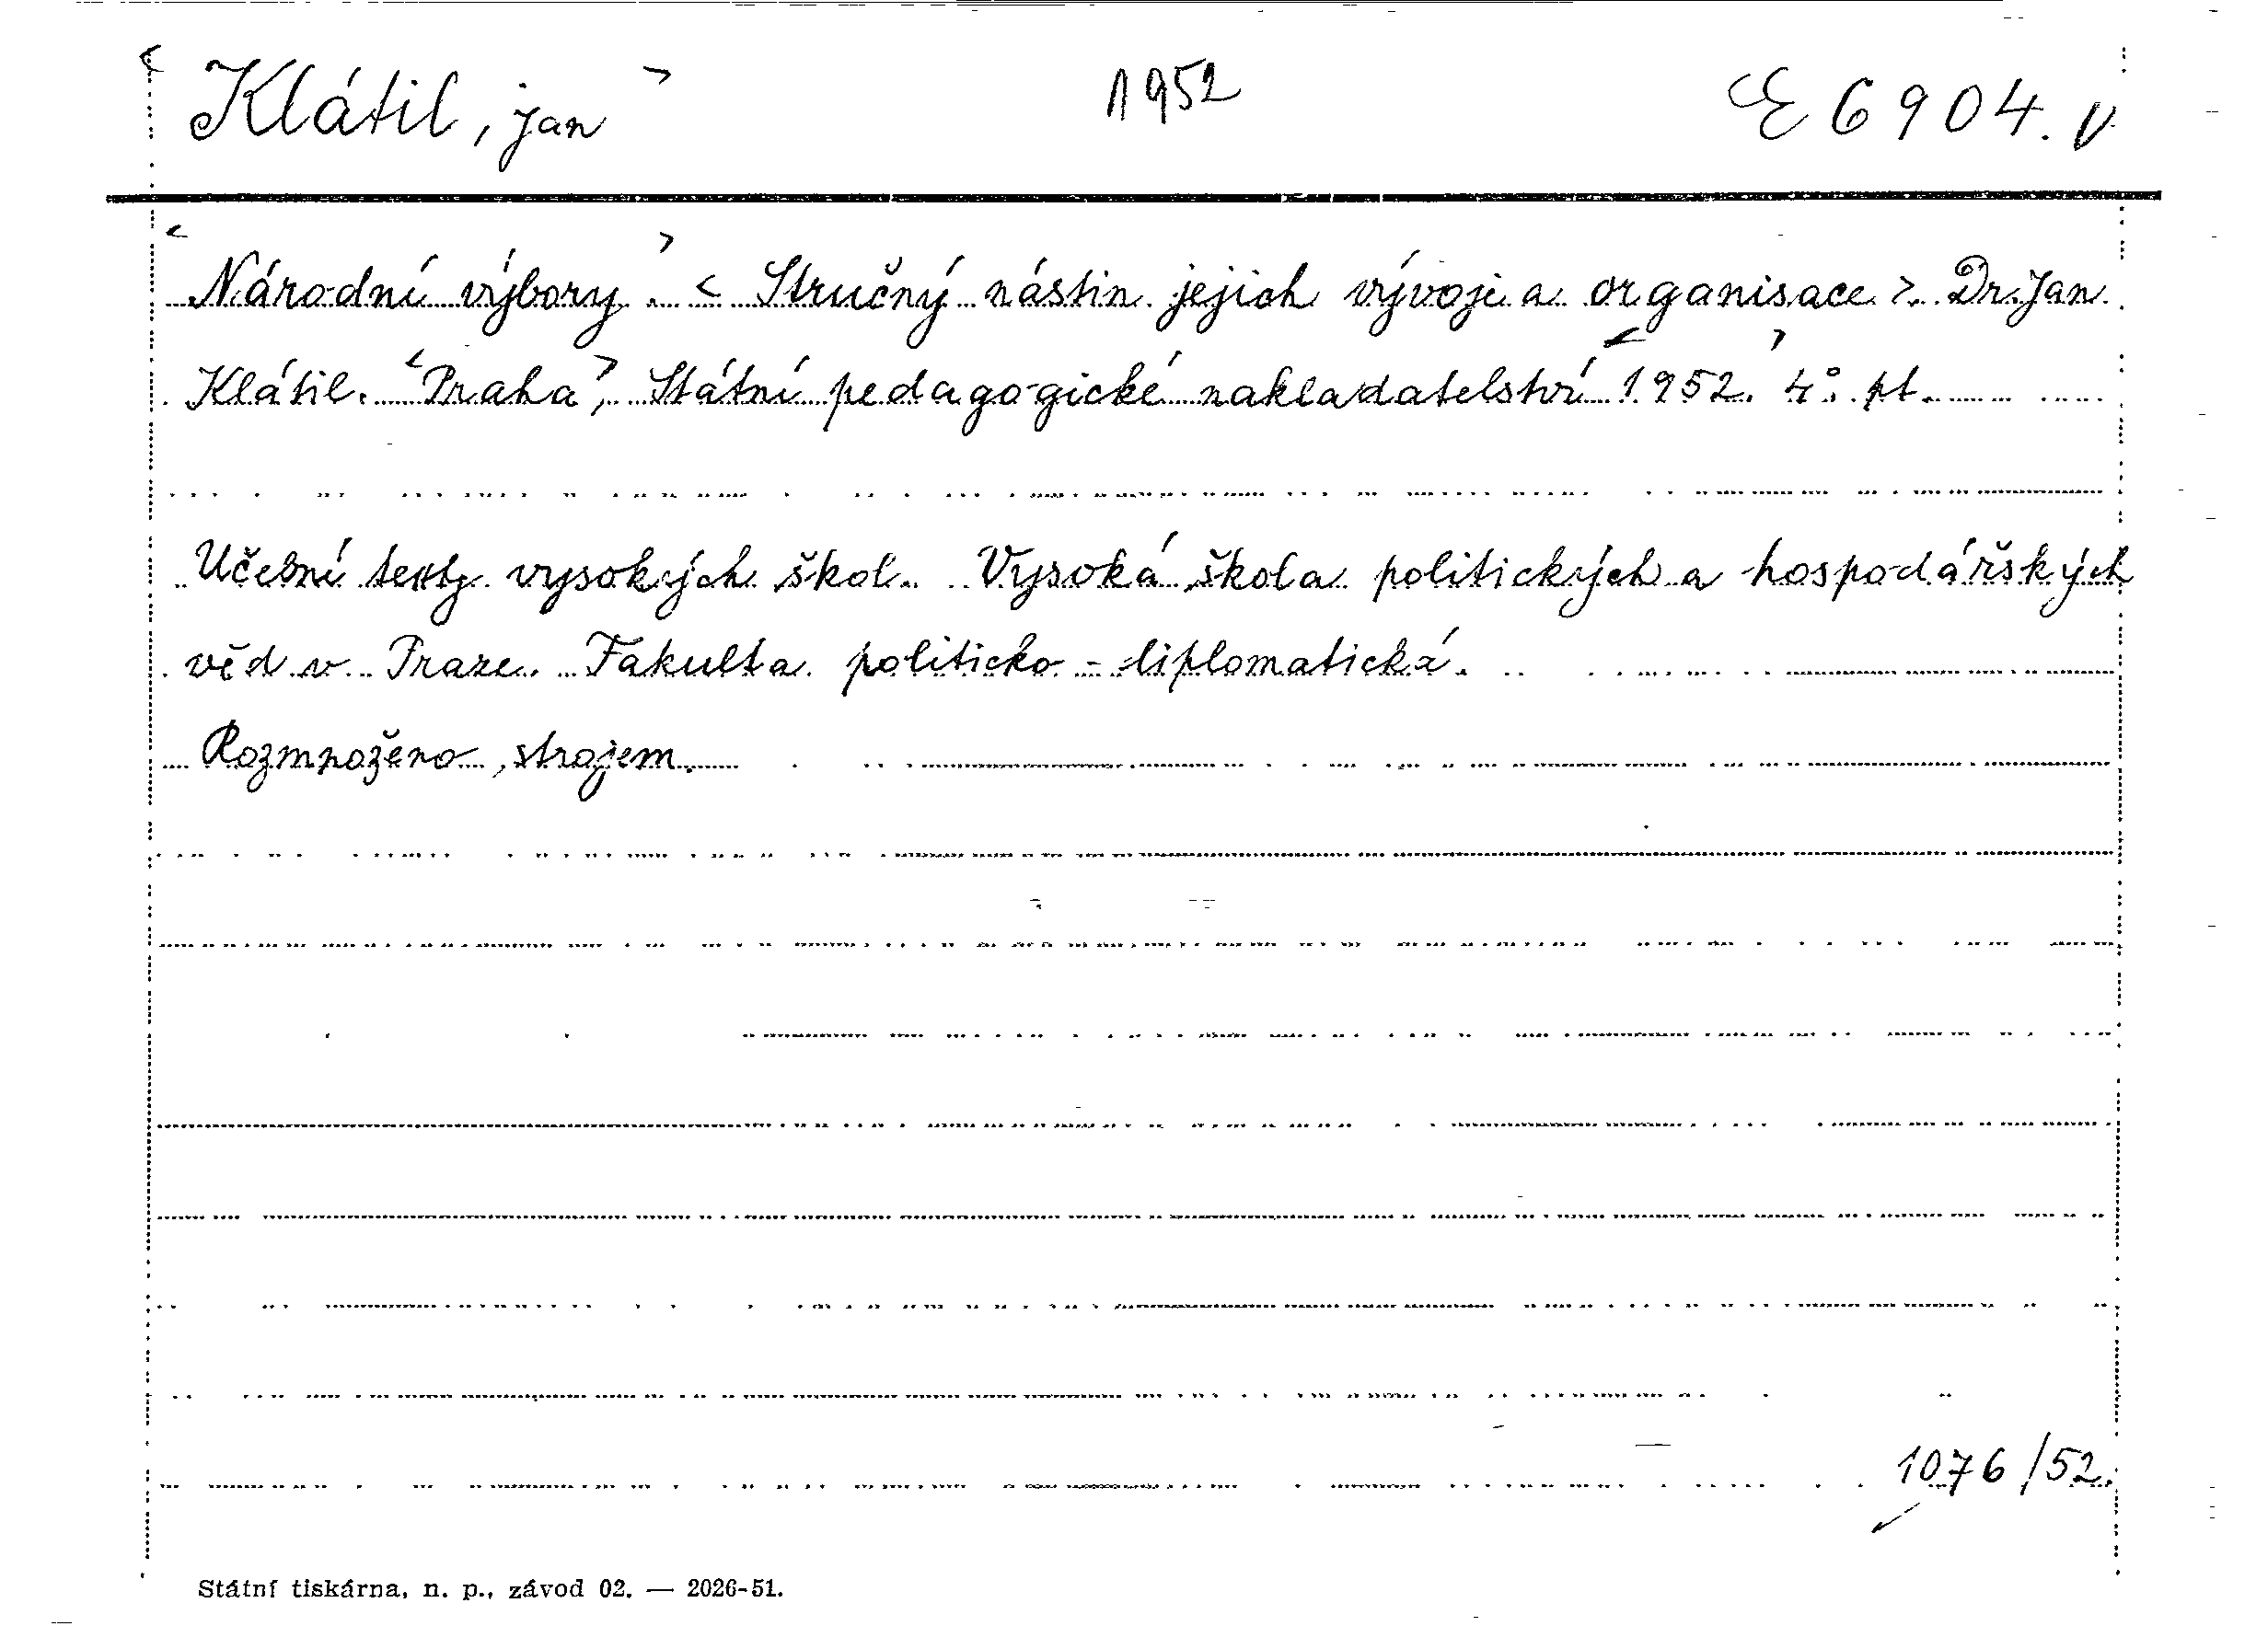 < Klátil, jan > 1952 E 6904. V
< Národní výbory. > < Stručný nástin jejich vývoje a organisace >. Dr. Jan
Klátil. < Praha >, Státní pedagogické nakladatelství < 1952. > 4°. pt.
Učební texty vysokých škol. Vysoká škola politických a hospodářských
věd v Praze. Fakulta politicko-diplomatická.
Rozmnoženo strojem.
1076/52.
Státní tiskárna, n. p., závod 02. — 2026-51.